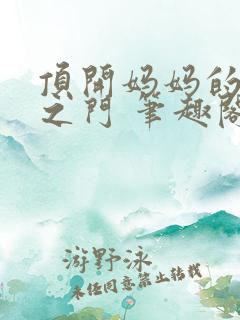 頂開妈妈的
之门 筆趣阁
游野泳
未经同意禁止转载